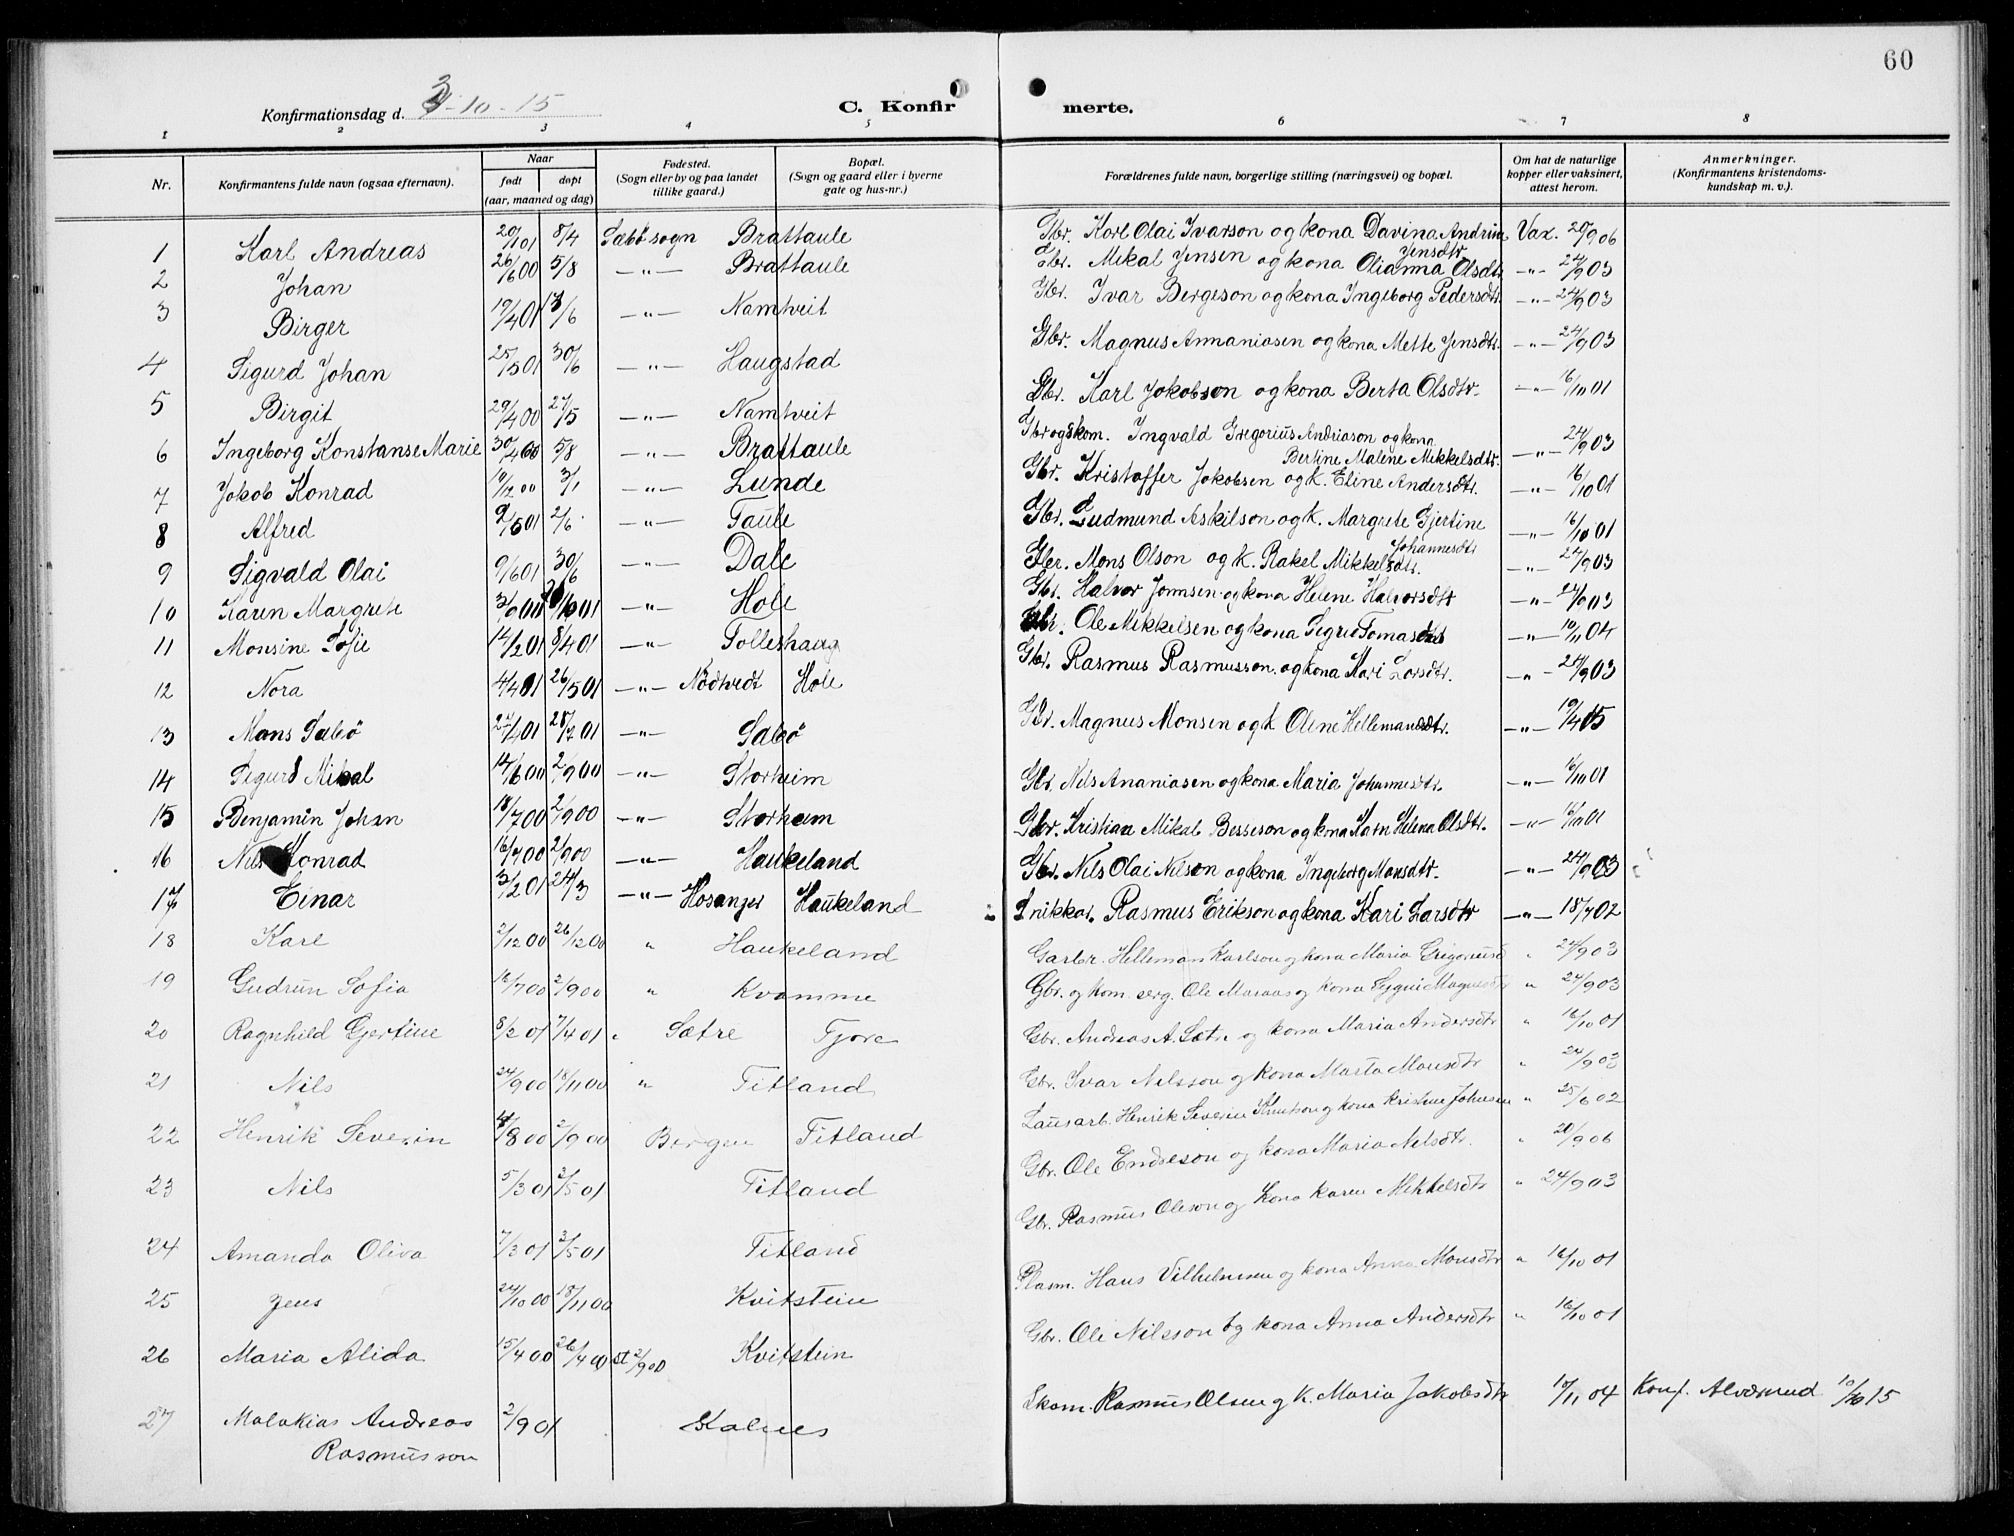 60
Konfirmationsdag d. 3-10-15
C. Konfirmerte.
1 2 3 4 5 6 7 8
Nr.
Konfirmantens fulde navn (ogsaa efternavn).
Naar
født døpt
(aar, maaned og dag)
Fødested.
(Sogn eller by og paa landet
tillike gaard.)
Bopæl.
(Sogn og gaard eller i byerne
gate og hus-nr.)
Forældrenes fulde navn, borgerlige stilling (næringsvei) og bopæl.
Om hat de naturlige
kopper eller vaksinert,
attest herom.
Anmerkninger.
(Konfirmantens kristendoms-
kundskap m. v.).
1 Karl Andreas 20/1 01 8/4 Sæbö sogn Brattaule Gbr. Karl Olai Ivarson og kona Davina Andrine Jensdtr Vax. 20/9 06
2 Johan 26/6 00 5/8 —"— Brattaule Gbr. Mikal Jensen og kona Olianna Olsdtr —"— 24/9 03
3 Birger 19/4 01 13/6 —"— Namtveit Gbr. Ivar Bergeson og kona Ingeborg Pedersdtr. —"— 24/9 03
4 Sigurd Johan 25/5 01 30/6 —"— Haugstad Gbr. Magnus Annaniasen og kona Mette Jensdtr. —"— 24/9 03
5 Birgit 29/4 00 27/5 —"— Namtveit Gbr. Karl Jokobson og kona Berta Olsdtr. —"— 16/10 01
6 Ingeborg Konstanse Marie 30/4 00 5/8 —"— Brattaule Gbr og skom. Ingvald Gregorius Andriason og kona
Bertine Malene Mikkelsdtr. —"— 24/9 03
7 Jokob Konrad 19/12 00 3/1 —"— Lunde Gbr. Kristoffer Jokobsen og k. Eline Andersdtr. —"— 16/10 01
8 Alfred 9/5 01 2/6 —"— Taule Gbr. Gudmund Askilson og k. Margrete Gjertine Johannesdtr —"— 16/10 01
9 Sigvald Olai 9/6 01 30/6 —"— Dale Gbr. Mons Olson og k. Rakel Mikkelsdtr. —"— 24/9 03
10 Karen Margrete —"— Hole Gbr. Halvor Jonnsen og kona Helene Halvorsdtr —"— 24/9 03
11 Monsine Sofie 14/2 01 8/4 01 —"— Tolleshaug Gbr. Ole Mikkelsen og kona Sigrid Tomasdtr —"— 19/11 04
12 Nora 4/4 01 26/5 01 —"— Nodtvedt Hole Gbr. Rasmus Rasmusson og kona Kari Larsdtr. —"— 24/9 03
13 Mons Sæbö —"— Sæbö Gbr. Magnus Monsen og k Oline Hellemansdtr. —"— 19/4 15
14 Sigurd Mikal 14/6 00 2/9 00 —"— Storheim Gbr. Nils Ananiasen og kona Maria Johannesdtr. —"— 16/10 01
15 Benjamin Johan 18/7 00 2/9 00 —"— Storheim Gbr. Kristian Mikal Besseson og kona Karn Helena Olsdtr. —"— 16/10 01
16 Nils Konrad 16/7 00 2/9 00 —"— Haukeland Gbr. Nils Olai Nilson og kona Ingeborg Monsdtr. —"— 24/9 03
17 Einar 3/2 01 24/3 —"— Hosanger Haukeland Snikkar. Rasmus Erikson og kona Kari Larsdtr —"— 18/7 02
18 Karl 2/12 00 26/12 00 " Haukeland Garbr. Helleman Karlson og kona Maria Grigoriusd " 24/9 03
19 Gudrun Sofia 16/7 00 2/9 00 " Kvamme Gbr. og kom. serg. Ole Maraas og kona Magnusdtr " 24/9 03
20 Ragnhild Gjertine 8/2 01 7/4 01 " Sætre Tjore Gbr. Andreas A. Sætre og kona Maria Andersdtr " 16/10 01
21 Nils 24/9 00 18/11 00 " Titland Gbr. Ivar Nilsson og kona Marta Monsdtr " 24/9 03
22 Henrik Severin 4/8 00 2/9 00 Bergen Titland Lausarb. Henrik Severin Knutson og kona Kristine Johnsen " 25/6 02
23 Nils 5/3 01 3/5 01 Titland Gbr. Ole Endreson og kona Maria Nilsdtr. " 20/9 06
24 Amanda Oliva 7/3 01 3/5 01 Titland Gbr. Rasmus Oleson og kona Karen Mikkelsdtr " 24/9 03
25 Jens 24/10 00 18/11 00 Kvitstein Plasm. Hans Vilhelmsen og kona Anna Monsdtr " 16/10 01
26 Maria Alida 15/4 00 26/4 00 st 2/9 00 Kvitstein Gbr. Ole Nilsson og kona Anna Andersdtr " 16/10 01
27 Malakias Andreas 2/9 01 Kalnes Skom. Rasmus Olsen og k. Maria Jakobsdtr 19/11 04 Konf. Alværsund 10/10 15
Rasmusson